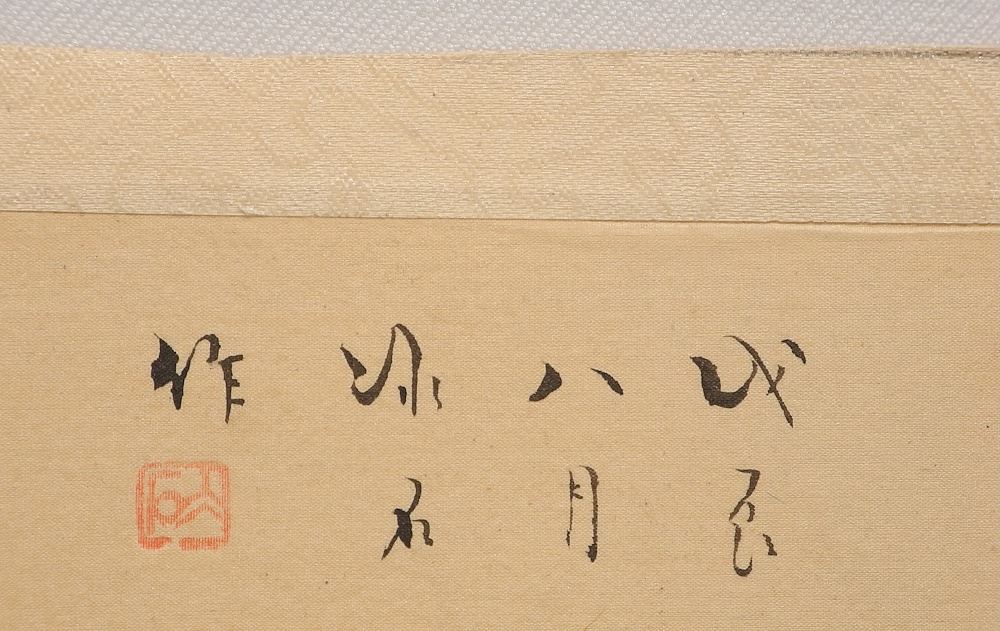 戊辰
八月
冰石
作